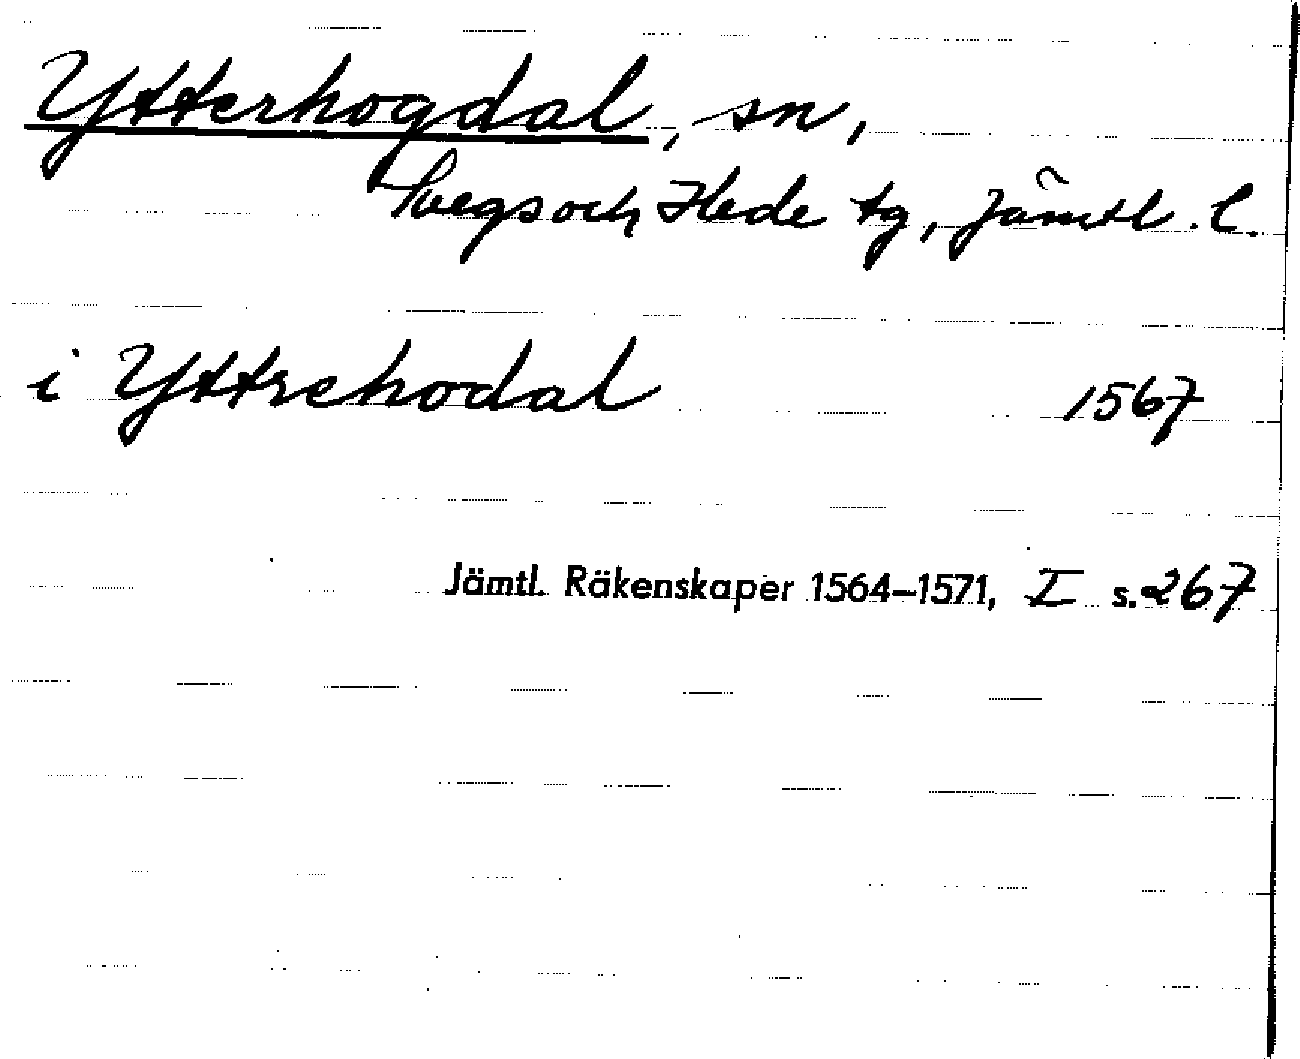 Ytterhogdal, sn,
Svegs och Hede tg, Jämtl. l.
i Yttrehodal 1567
Jämtl. Räkenskaper 1564–1571, I s. 267